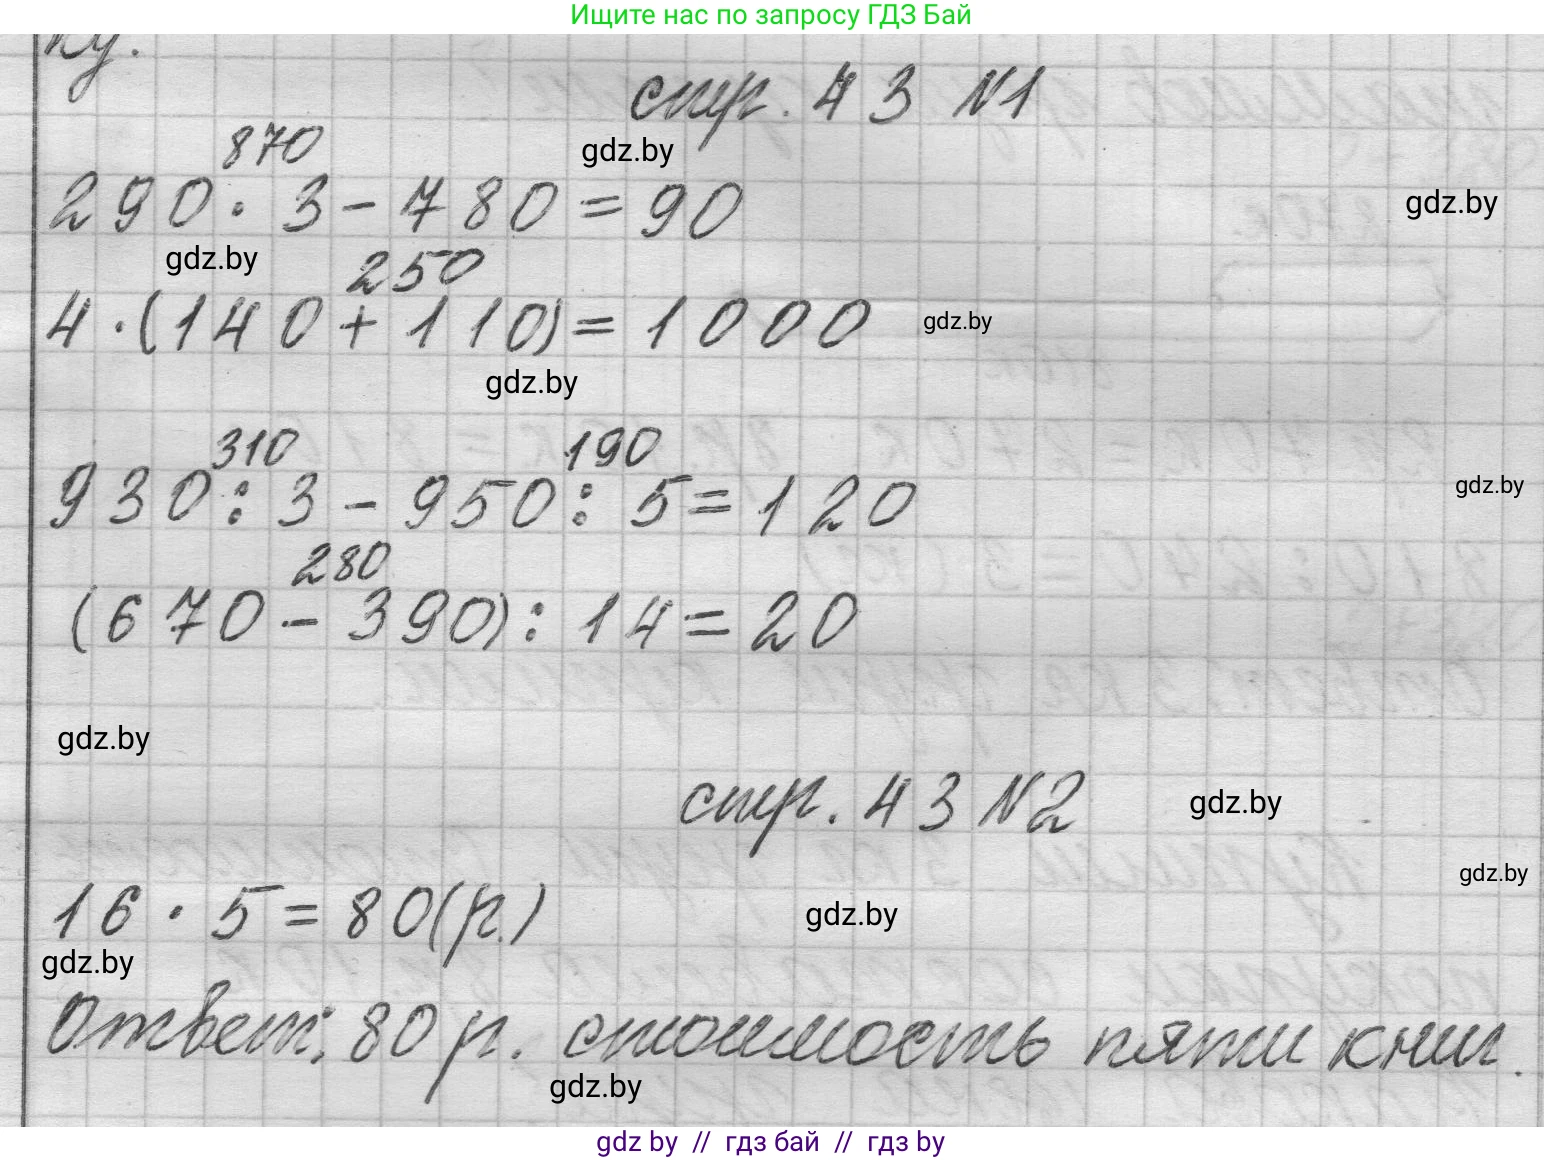 Ищите нас по запросу ГДЗ Бай
ку.
стр. 43 N1
870
gdz.by
290 · 3 - 780 = 90
gdz.by
gdz.by
250
4 · (140 + 110) = 1000
gdz.by
gdz.by
310 190
930 : 3 - 950 : 5 = 120
gdz.by
280
(670 - 390) : 14 = 20
gdz.by
стр. 43 N2
gdz.by
gdz.by
16 · 5 = 80 (р.)
gdz.by
gdz.by
Ответ: 80 р. стоимость пяти книг.
gdz.by
gdz by // гдз бай // гдз by